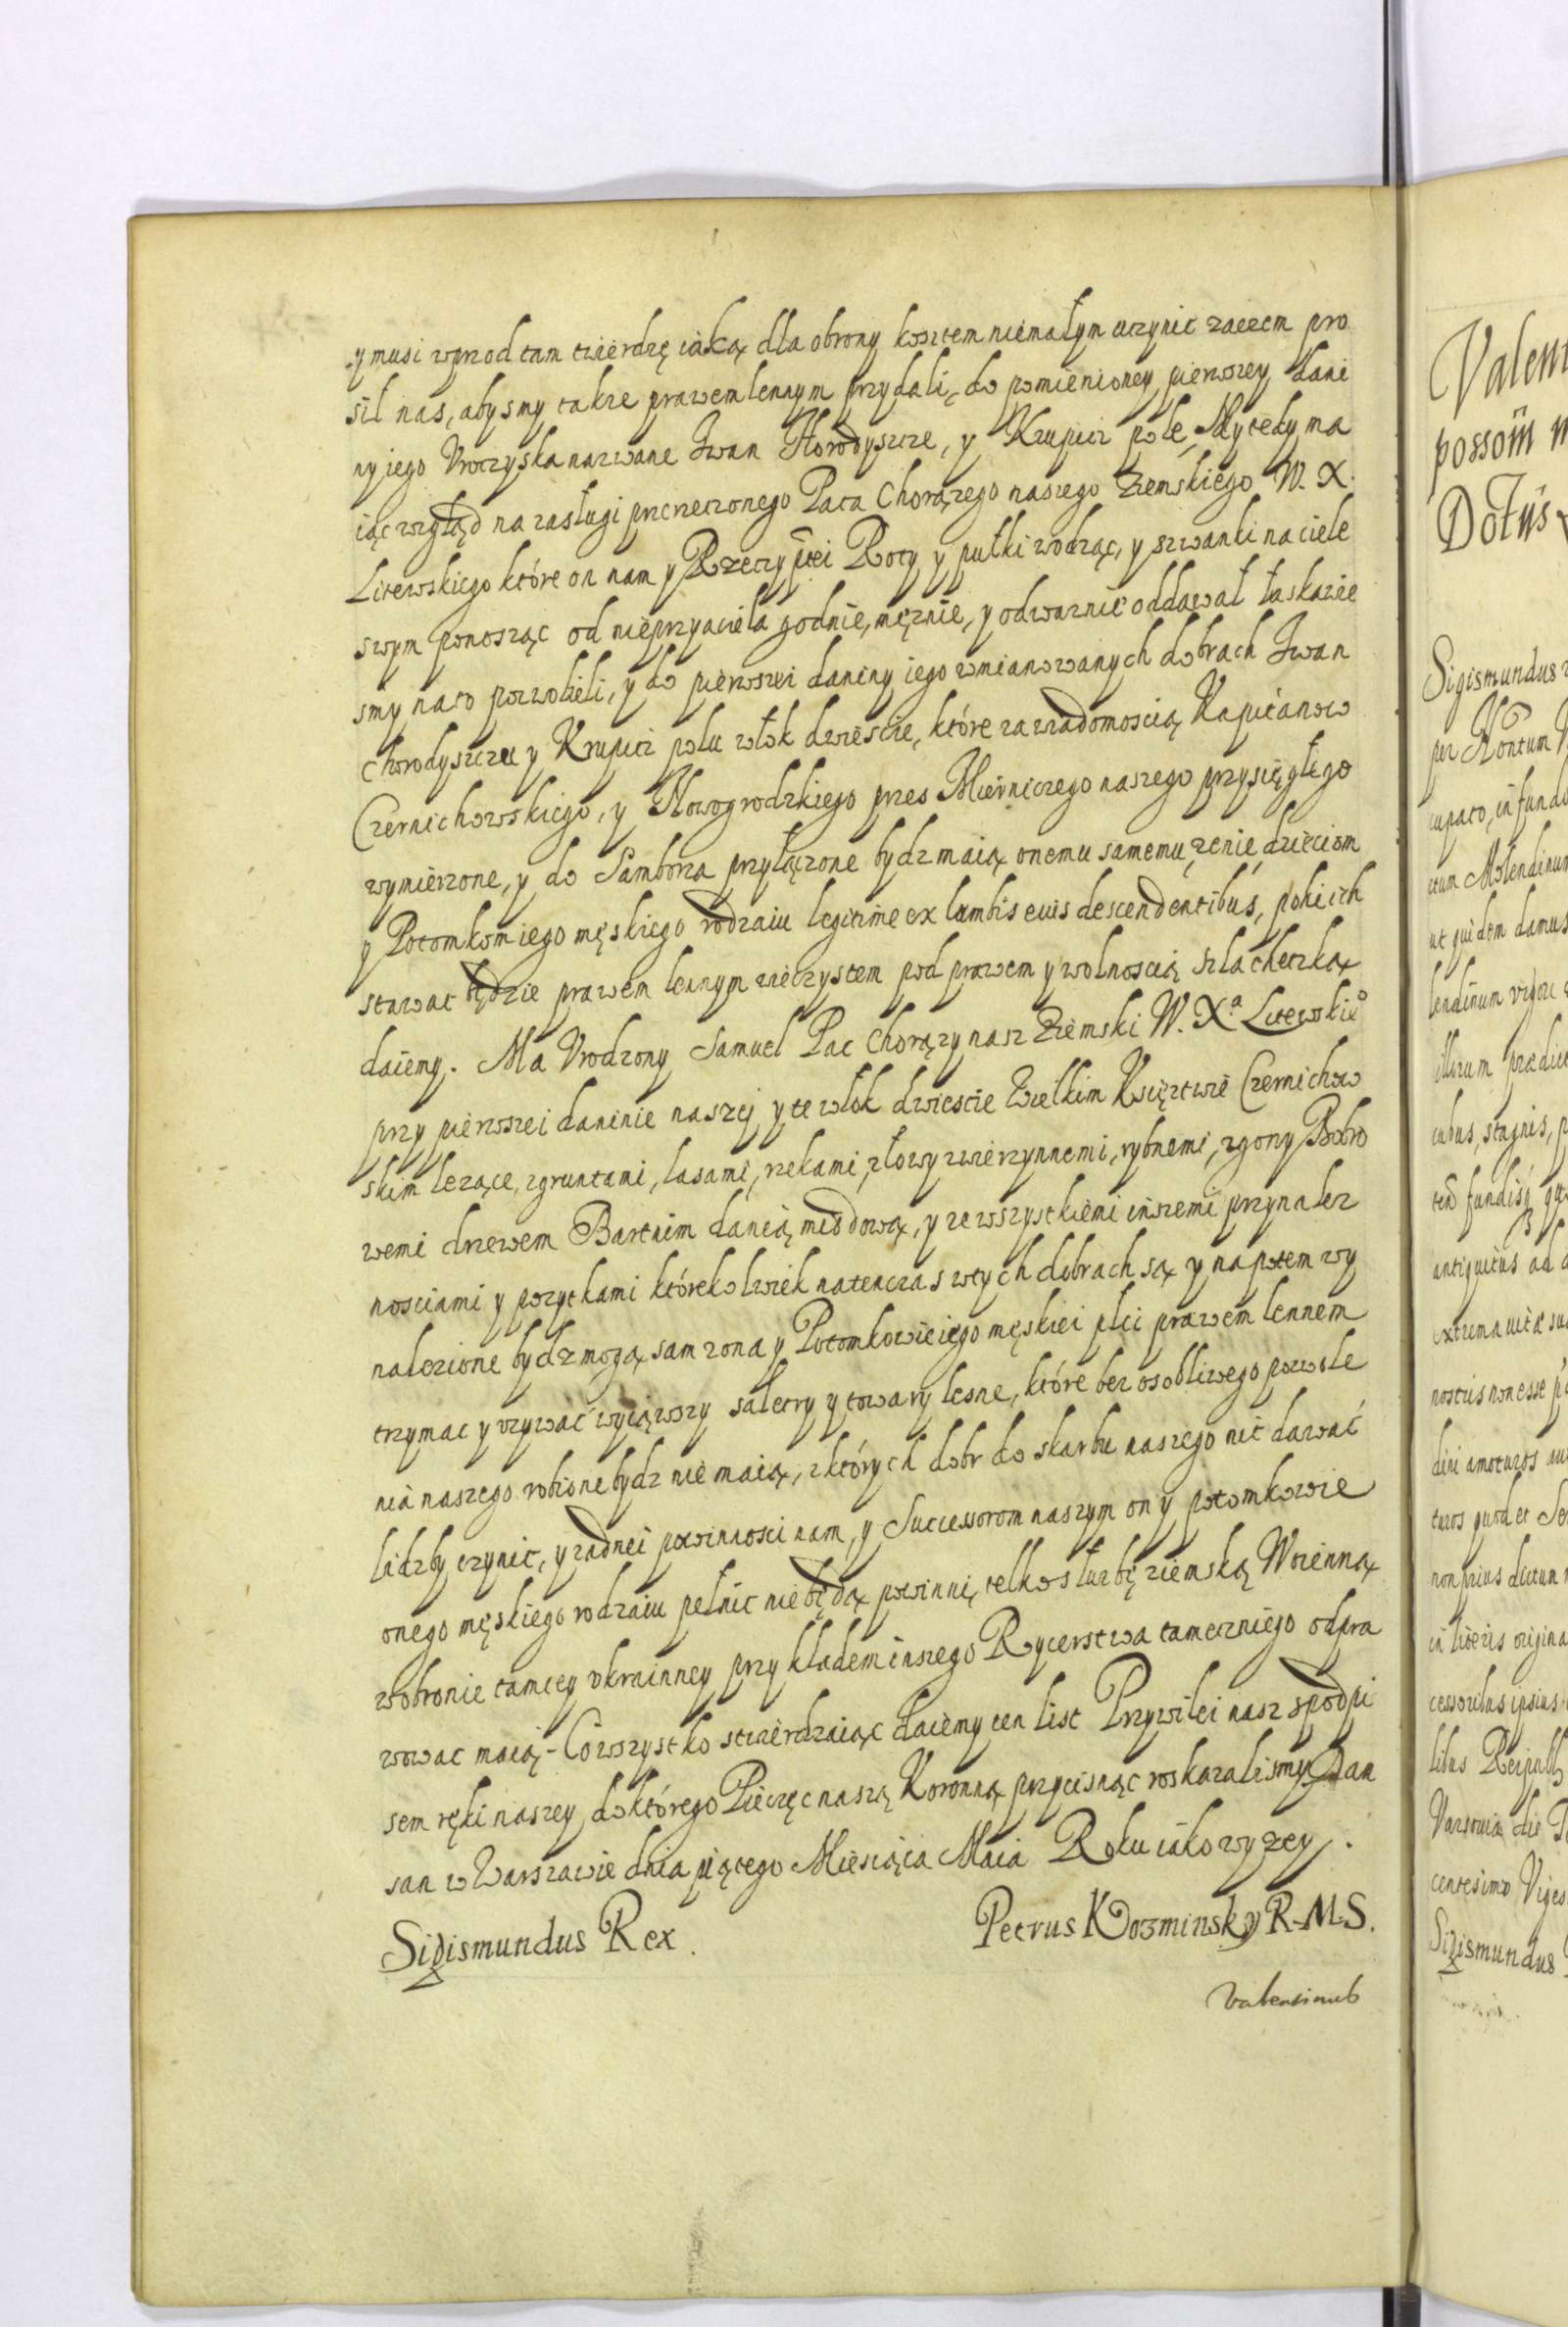 y musi wprzod tam twierdzę iaką dla obrony kosztem niemałym uczynic zaczem pro
sił nas, abysmy takze prawem lennym przydali, do pomienioney pierwszey dani
ny jego Vroczyska nazwane Iwan Horodyszcze, y Krupicz pole, My tedy ma
iąc wzgląd na zasługi przerzeczonego Paca Chorążego naszego Ziemskiego W. X.
Litewskiego które on nam y Rzeczyptei Roty y pułki wodząc, y szwanki na ciele
swym ponosząc od nieprzyaciela godnie, mężnie, y odwaznie oddawał łaskawie
smy na to pozwolieli, y do pierwszei daniny iego wmianowanych dobrach Iwan
chorodyszczu y Krupicz polu włok dwiescie, które za wiadomoscią Kapitanow
Czernichowskiego, y Nowogrodzkiego przes Mierniczego naszego przysięgłego
wymierzone, y do Samborza przyłączone bydz maią onemu samemu, zenie, dzieciom
y Potomkom iego męskiego rodzaiu legitime ex lumbis euis descendentibus, poki ich
stawac będzie prawem lennym wieczystem pod prawem y wolnoscią szlachetzką
daiemy. Ma Vrodzony Samuel Pac Chorąży nasz Ziemski W. Xa Litewskie°
przy pierwszei daninie naszej y te włok dwiescie Wielkim Księztwie Czernichow
skim lezące, zgruntami, lasami, rzekami, złowy zwierzynnemi, rybnemi, zgony Bobro
wemi drzewem Bartnim danią miodową, y ze wszystkiemi inszemi przynalez
nosciami y pozytkami którekolwiek natenczas wtych dobrach są y napotem wy
nalezione bydz mogą sam zona y Potomkowie iego męskiei płci prawem lennem
trzymac y vzywać wyiąwszy saletry y towary lesne, które bez osobliwego pozwole
nia naszego robione bydz nie maią, z których dobr do skarbu naszego nic dawać
lidzby czynic, y zadnei powinnosci nam, y Successorom naszym on y potomkowie
onego męskiego rodzaiu pełnic nie będą powinni, telko służbę ziemską Woienną
wobronie tamtey vkrainney przykładem inszego Rycerstwa tamecznieo odpra
wowac maią - Co wszystko stwierdzaiąc daiemy ten list Przywilei nasz spodpi
sem ręki naszey, do którego Pieczęc naszą Koronną przycisnąc roskazalismy Dan
san w Warszawie dnia piątego Miesiąca Maia Roku iako wyzey.
Sigismundus Rex. Petrus Kozminsky R-M-S.
Valentinus
Valent
possom
Dotus
Sigismundus
cupato, in fundo
ctum Molendinum
ut quidem damus
lendinum vigore
illorum prædict
cubus, stagnis, p
antiquitus ad
extrema vitæ su
nostris non esse p
turos quod et Se
non prius dictum
in literis origina
cessoribus ipsius
libus Reipub
Varsoviæ die
centesimo Viges
Sigismundus